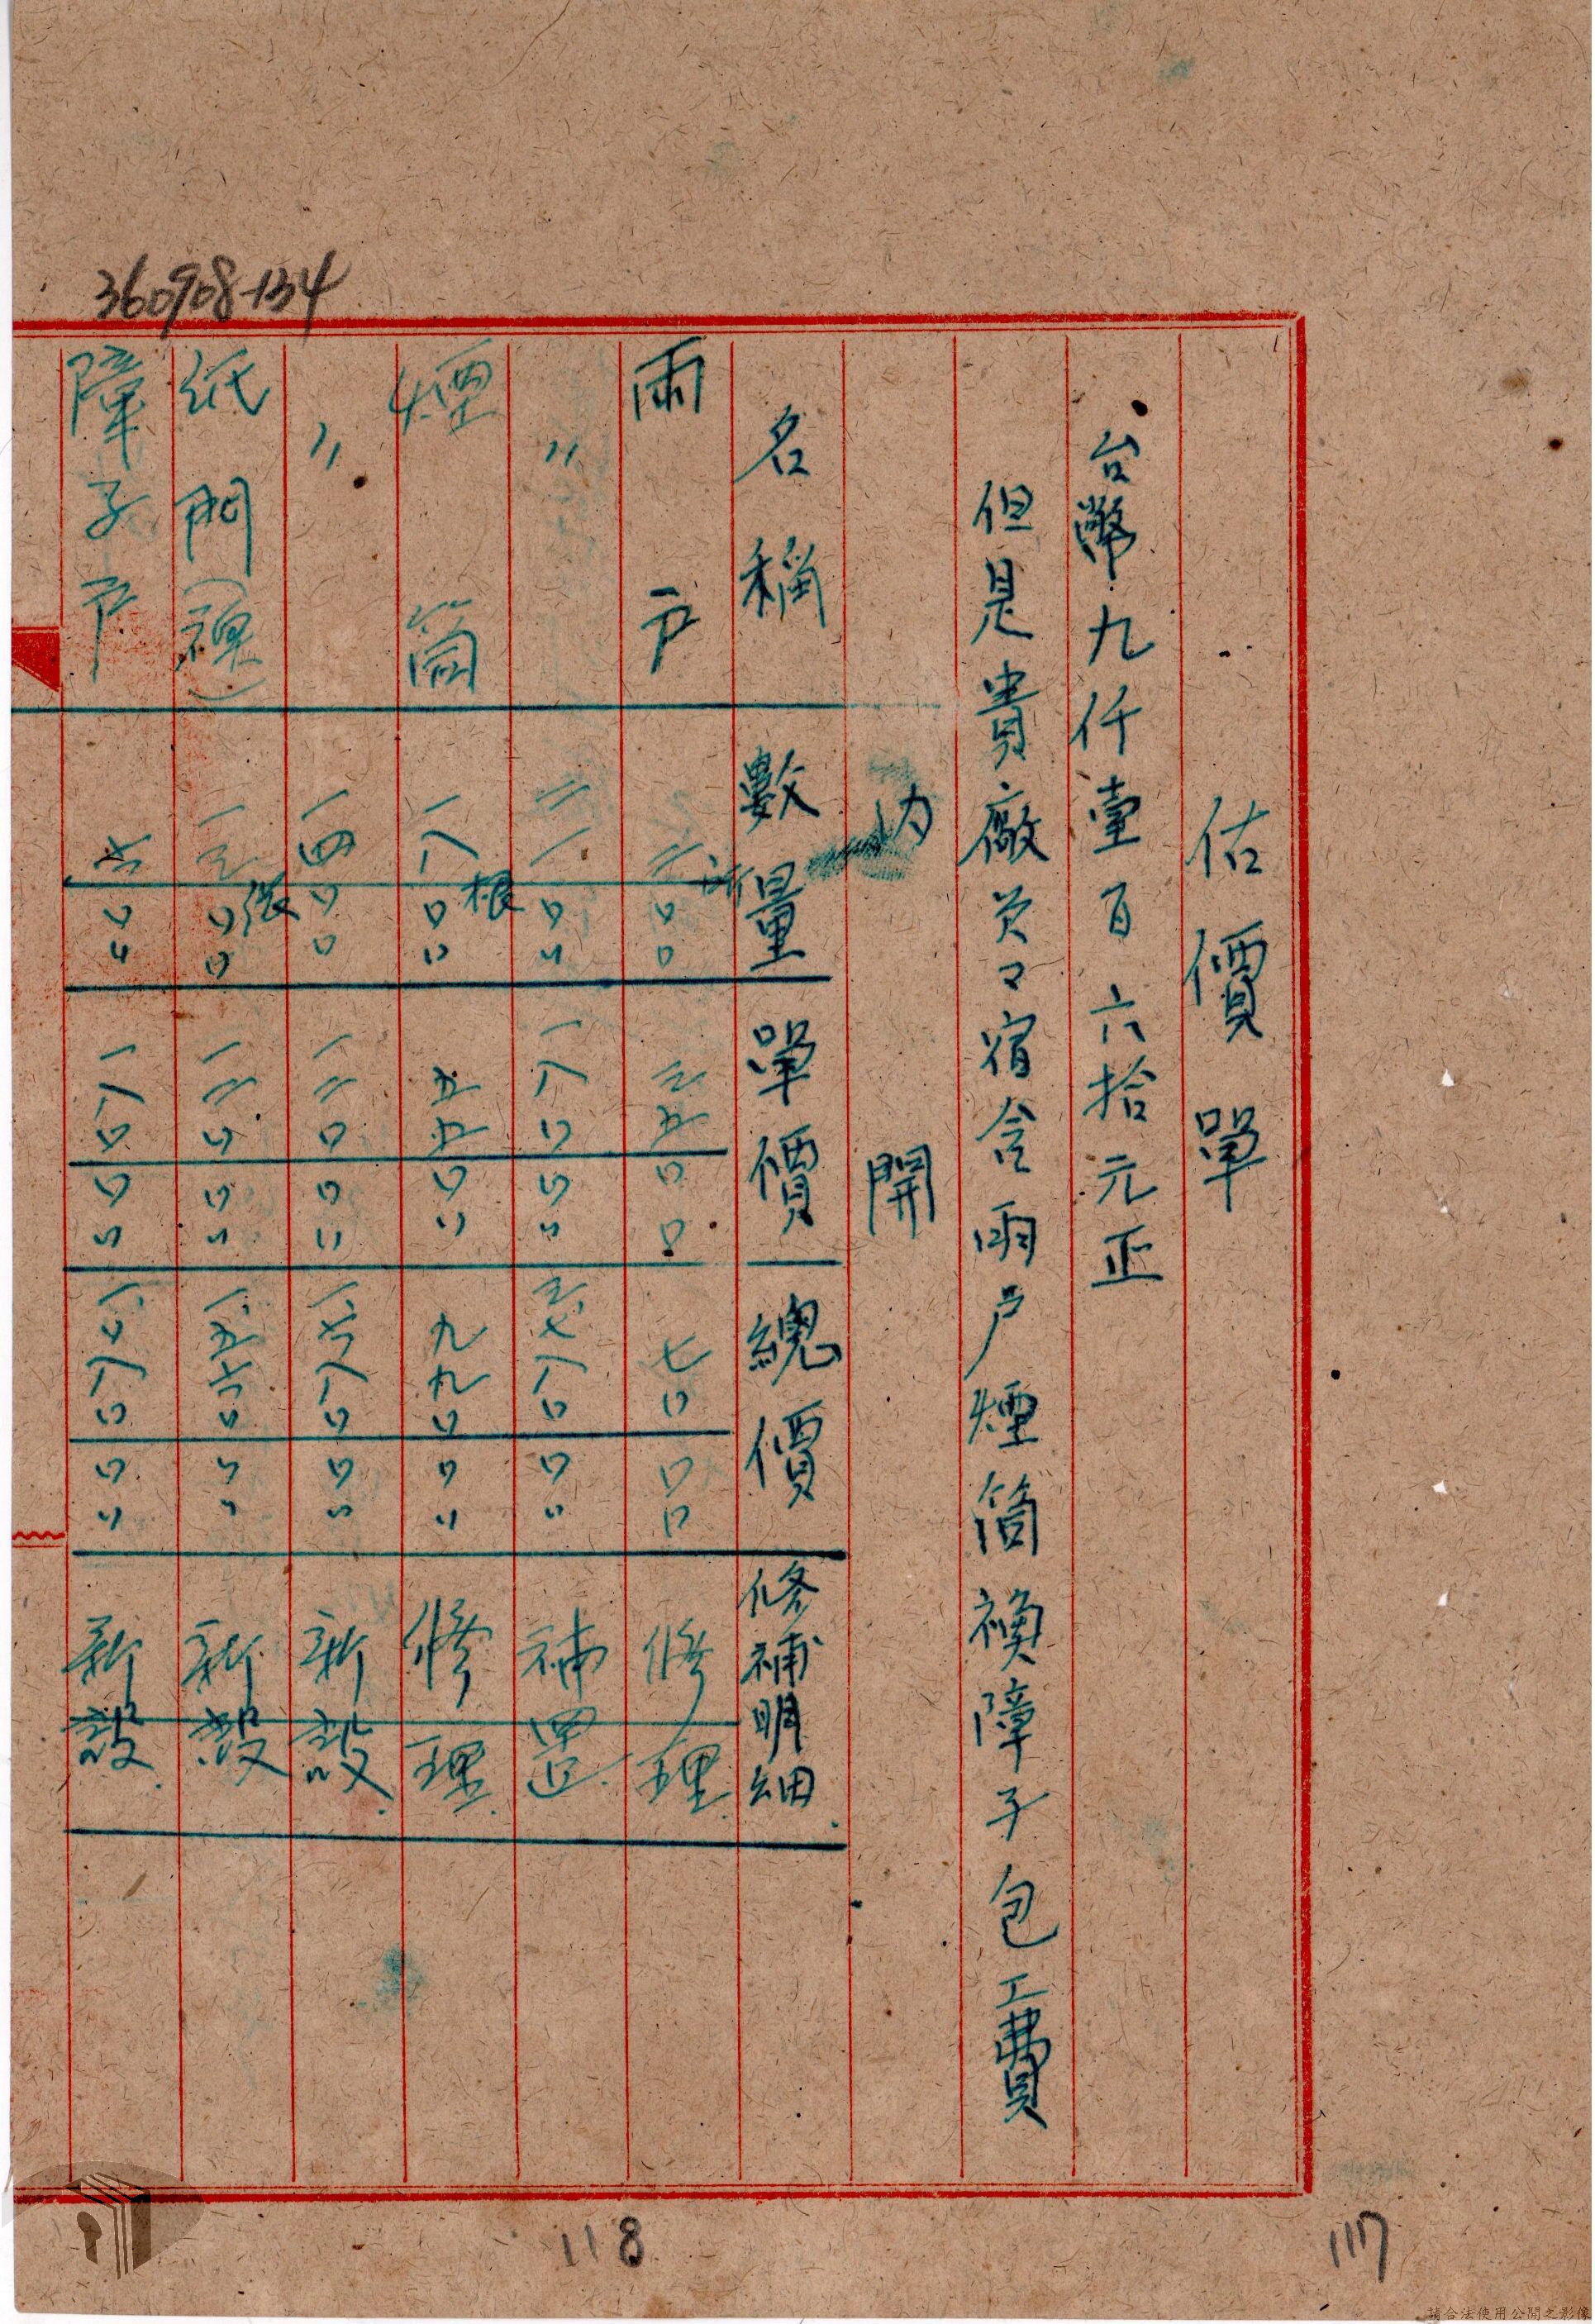 估價單
台幣九仟壹百六拾元正
但是貴廠員々宿舍雨戶煙筒襖障子包工費
內開
名稱 數量 單價 總價 修補明細
雨戶 二〇〇 三五〇〇 七〇〇〇 修理
〃 二一〇〇 一八〇〇〇 三七八〇〇〇 補置
煙筒 一八〇〇 根 五五〇〇 九九〇〇〇 修理
〃 一四〇〇 一二〇〇〇 一六八〇〇〇 新設
紙門(襖) 一三〇〇 張 一二〇〇〇 一五六〇〇〇 新設
障子戶 六〇〇 一八〇〇〇 一〇八〇〇〇 新設
360908-134
118
117
請合法使用公開之影像